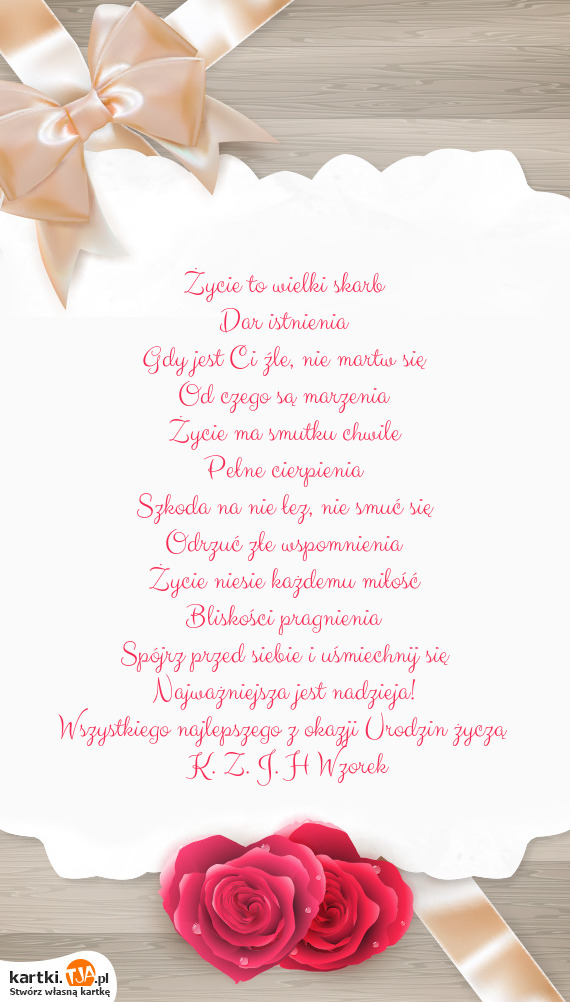 Życie to wielki skarb
Dar istnienia
Gdy jest Ci źle, nie martw się
Od czego są marzenia
Życie ma smutku chwile
Pełne cierpienia
Szkoda na nie łez, nie smuć się
Odrzuć złe wspomnienia
Życie niesie każdemu miłość
Bliskości pragnienia
Spójrz przed siebie i uśmiechnij się
Najważniejsza jest nadzieja!
Wszystkiego najlepszego z okazji Urodzin życzą
K. Z. J. H Wzorek
kartki.TJA.pl
Stwórz własną kartkę